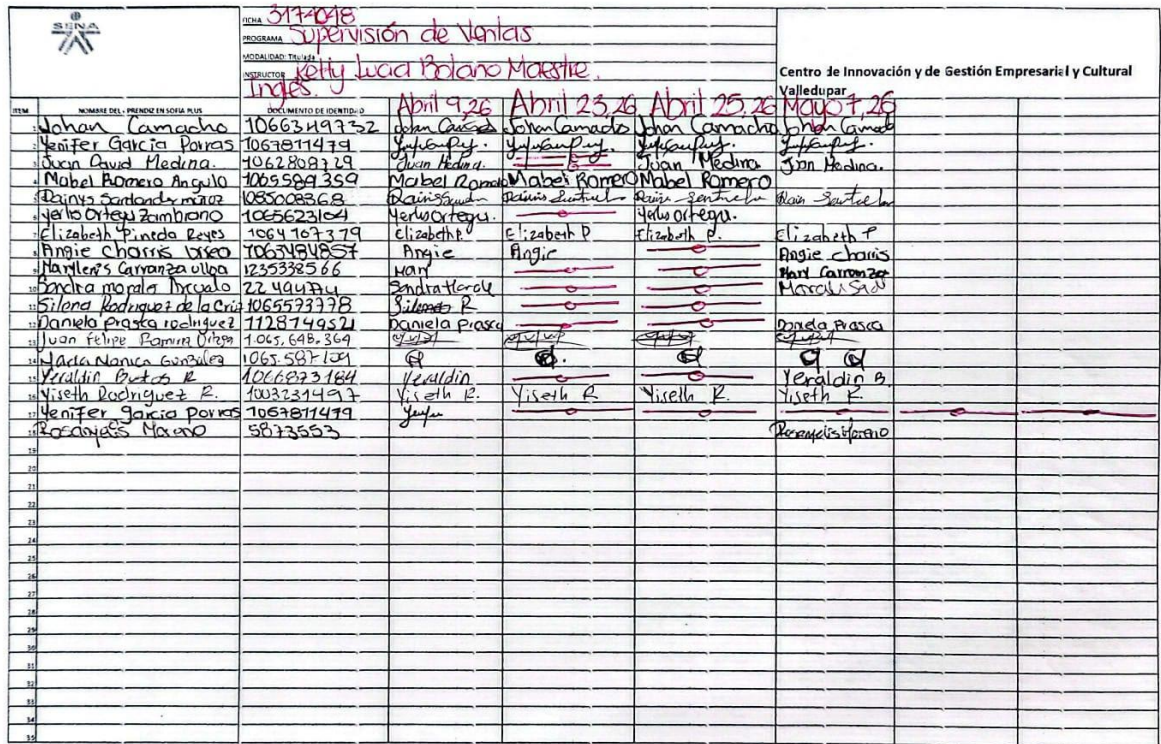 SENA
FICHA 3174048
PROGRAMA Supervisión de Ventas.
MODALIDAD: Titulada
INSTRUCTOR Ketty Lucia Bolano Maestre.
Inglés.
Centro de Innovación y de Gestión Empresarial y Cultural
Valledupar
ITEM NOMBRE DEL APRENDIZ EN SOFIA PLUS DOCUMENTO DE IDENTIDAD Abril 9,26 Abril 23,26 Abril 25,26 Mayo 7,26
1 Johan Camacho 1066349732 Johan Camacho Johan Camacho Johan Camacho
2 Yenifer Garcia Porras 1067811479
3 Juan David Medina. 1062808729 Juan Medina. Juan Medina Juan Medina.
4 Mabel Romero Angulo 1065589359 Mabel Romero Mabel Romero Mabel Romero
5 Dainys Santander muñoz 1085008368
6 Yerlis Ortega Zambrano 1065623104 Yerlis Ortega. Yerlis Ortega.
7 Elizabeth Pineda Reyes 1064107379 Elizabeth P. Elizabeth P Elizabeth P. Elizabeth P
8 Angie Charris 1065484857 Angie Angie Angie charris
9 Marylenis Carranza ulloa 1235338566 Mary Mary Carranza
10 Sandra morales 22494774
11 Silena Rodriguez de la Cruz 1065573778 Silena R
12 Daniela Prasca rodriguez 1128149521 Daniela Prasca Daniela Prasca
13 Juan Felipe 1.065.648.364
14 Maria Monica Gonzalez 1065.587109
15 Yeraldin Bustos R 1066873184 Yeraldin Yeraldin B.
16 Yiseth Rodriguez R. 1003231497 Yiseth R. Yiseth R Yiseth R. Yiseth R
17 Yenifer garcia Porras 1067811479
18 Rosangelis Moreno 5873553 Rosangelis Moreno
19
20
21
22
23
24
25
26
27
28
29
30
31
32
33
34
35